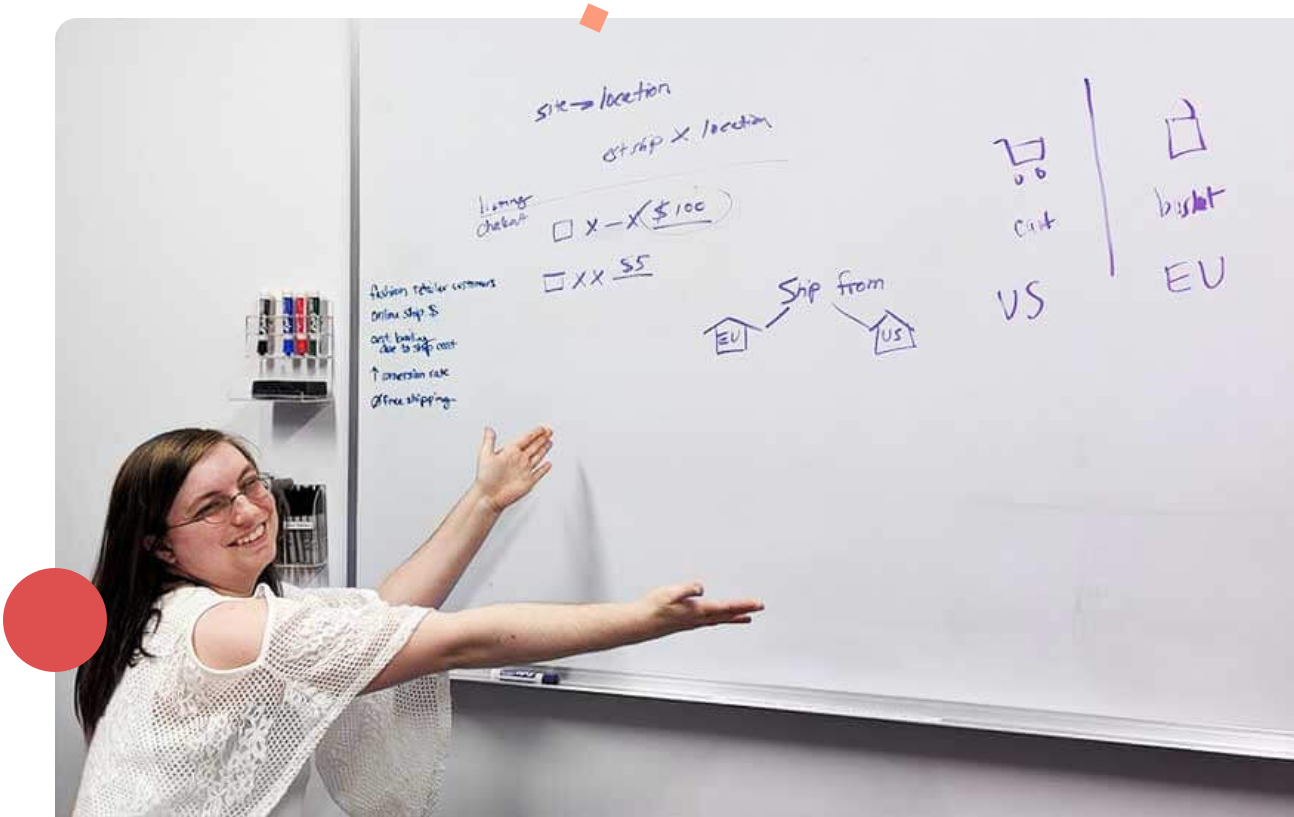 site → location
est ship x location
listing
checkout
X - X $100
X X $5
fashion retailer customers
online ship $
due to ship cost
↑ conversion rate
Ø free shipping
Ship from
EU
US
cart
US
basket
EU